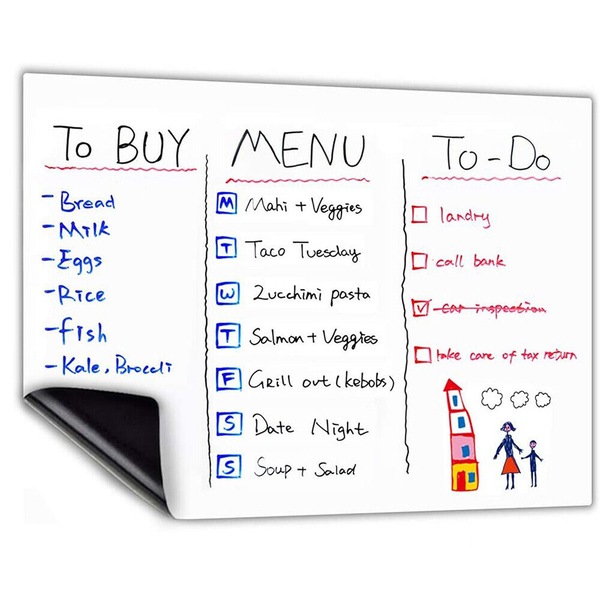 To BUY
- Bread
- Milk
- Eggs
- Rice
- fish
- Kale, Broccli
MENU
M Mahi + Veggies
T Taco Tuesday
W Zucchimi pasta
T Salmon + Veggies
F Grill out (kebobs)
S Date Night
S Soup + Salad
To-Do
landry
call bank
car inspection
take care of tax return